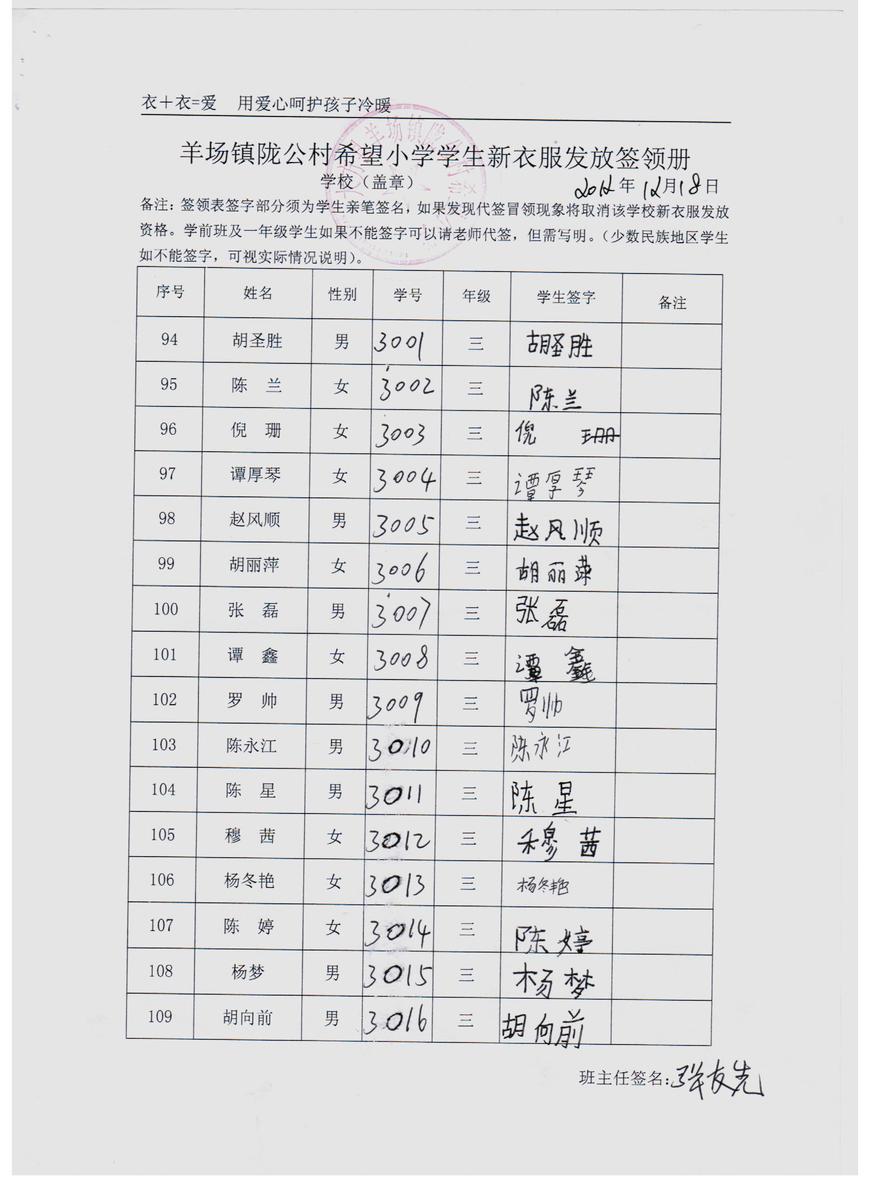 衣＋衣=爱 用爱心呵护孩子冷暖
羊场镇陇公村希望小学学生新衣服发放签领册
学校（盖章） 2012年12月18日
备注：签领表签字部分须为学生亲笔签名，如果发现代签冒领现象将取消该学校新衣服发放
资格。学前班及一年级学生如果不能签字可以请老师代签，但需写明。（少数民族地区学生
如不能签字，可视实际情况说明）。
序号 姓名 性别 学号 年级 学生签字 备注
94 胡圣胜 男 3001 三 胡圣胜
95 陈 兰 女 3002 三 陈兰
96 倪 珊 女 3003 三 倪 珊
97 谭厚琴 女 3004 三 谭厚琴
98 赵风顺 男 3005 三 赵风顺
99 胡丽萍 女 3006 三 胡丽萍
100 张 磊 男 3007 三 张磊
101 谭 鑫 女 3008 三 谭 鑫
102 罗 帅 男 3009 三 罗帅
103 陈永江 男 3010 三 陈永江
104 陈 星 男 3011 三 陈 星
105 穆 茜 女 3012 三 穆 茜
106 杨冬艳 女 3013 三 杨冬艳
107 陈 婷 女 3014 三 陈婷
108 杨梦 男 3015 三 杨梦
109 胡向前 男 3016 三 胡向前
班主任签名：张友先